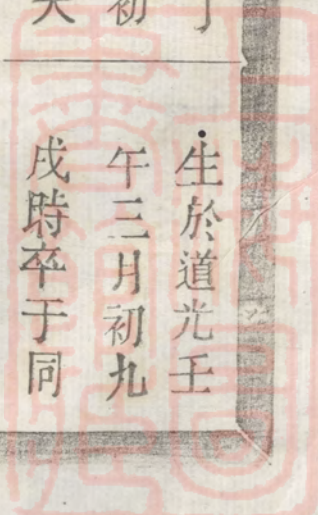 初
生於道光壬
午三月初九
戌時卒于同